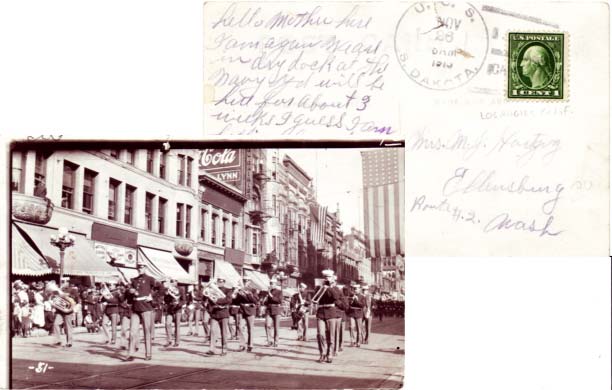 hello Mother here
I am again We are
in dry dock at the
Navy Yd will be
here for about 3
weeks I guess I am
U. S. S.
NOV
26
6 AM
1915
S. DAKOTA.
U.S. POSTAGE
1 CENT 1
LOS ANGELES CALIF.
Mrs. M. J.
Ellensburg
Route #2. Wash
Cola
LYNN
-51-